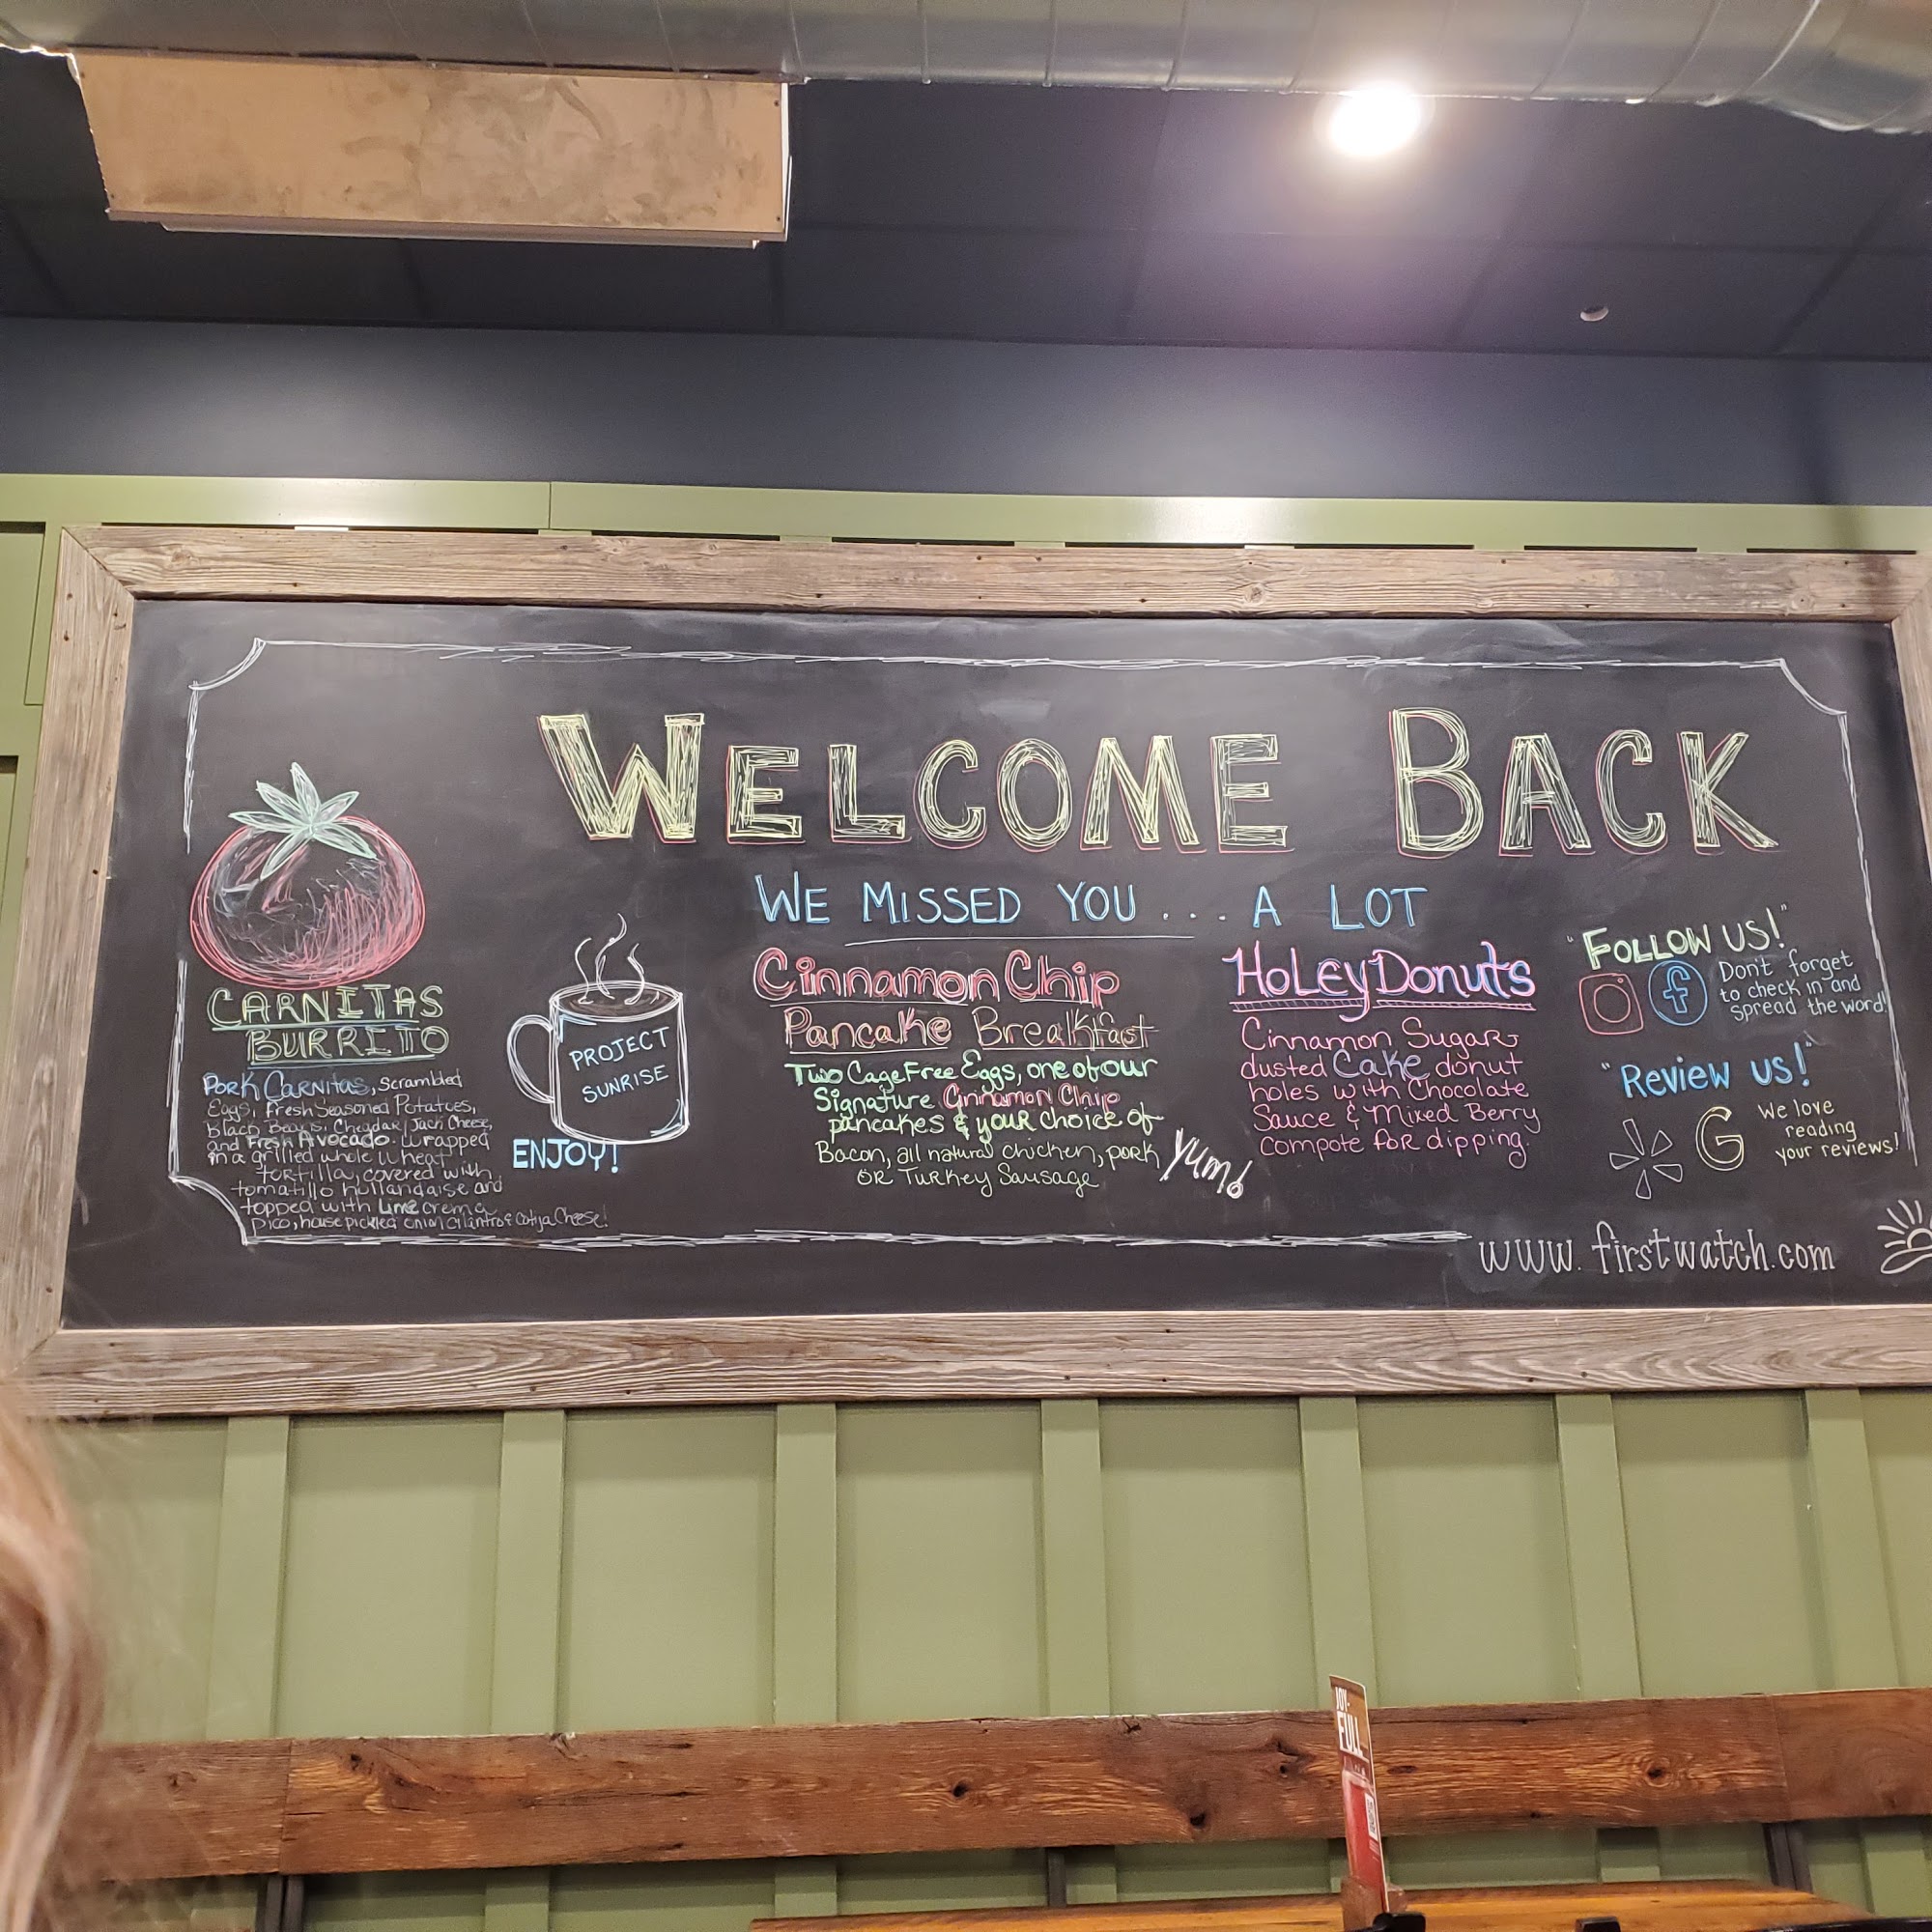 WELCOME BACK
WE MISSED YOU... A LOT
CARNITAS
BURRITO
PORK CARNITAS, Scrambled
Eggs, Fresh Seasoned Potatoes,
Black Beans, Cheddar/Jack Cheese,
and Fresh Avocado. Wrapped
in a grilled whole wheat
tortilla, covered with
tomatillo hollandaise and
topped with Lime crema
Pico, house pickled onion, cilantro & Cotija Cheese!
PROJECT
SUNRISE
ENJOY!
Cinnamon Chip
Pancake Breakfast
Two Cage Free Eggs, one of our
Signature Cinnamon Chip
pancakes & your choice of
Bacon, all natural chicken, pork
OR Turkey Sausage
Yum!
HoLey Donuts
Cinnamon Sugar
dusted Cake donut
holes with Chocolate
Sauce & Mixed Berry
Compote for dipping.
"FOLLOW US!"
Don't forget
to check in and
spread the word!
"Review us!"
G
We love
reading
your reviews!
www.firstwatch.com
JOY-
FULL